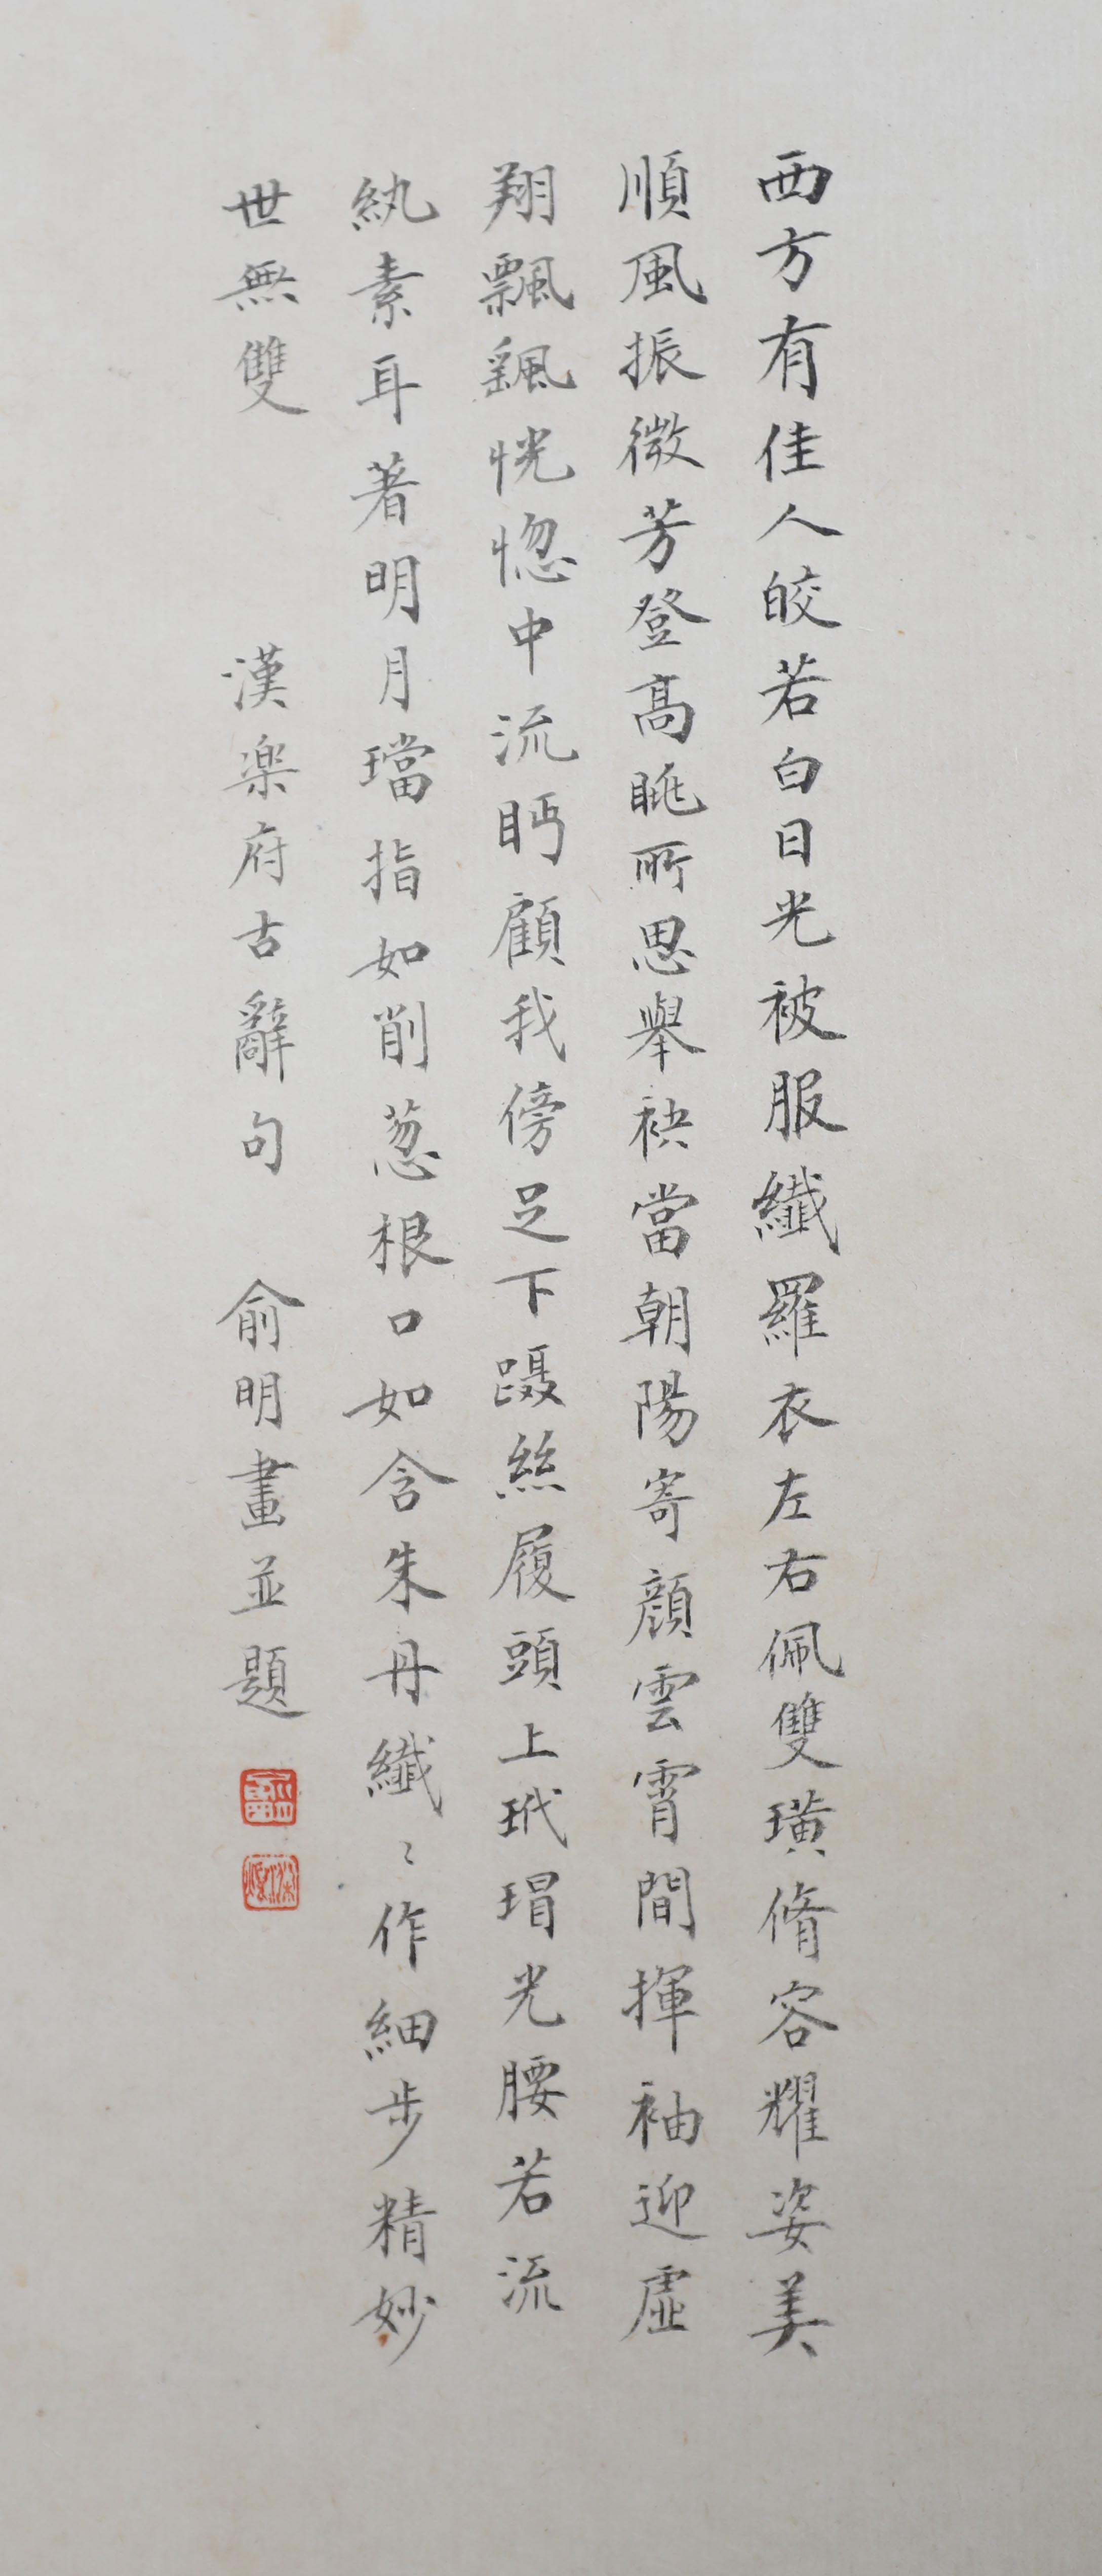 西方有佳人皎若白日光被服纖羅衣左右佩雙璜脩容耀姿美
順風振微芳登高眺所思舉袂當朝陽寄顏雲霄間揮袖迎虛
翔飄颻恍惚中流眄顧我傍足下躡絲履頭上玳瑁光腰若流
紈素耳著明月璫指如削葱根口如含朱丹纖〻作細步精妙
世無雙 漢楽府古辭句 俞明畫並題